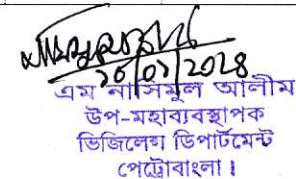 ২০/০১/2028
এম নাসিমুল আলীম
উপ-মহাব্যবস্থাপক
ভিজিলেন্স ডিপার্টমেন্ট
পেট্রোবাংলা।